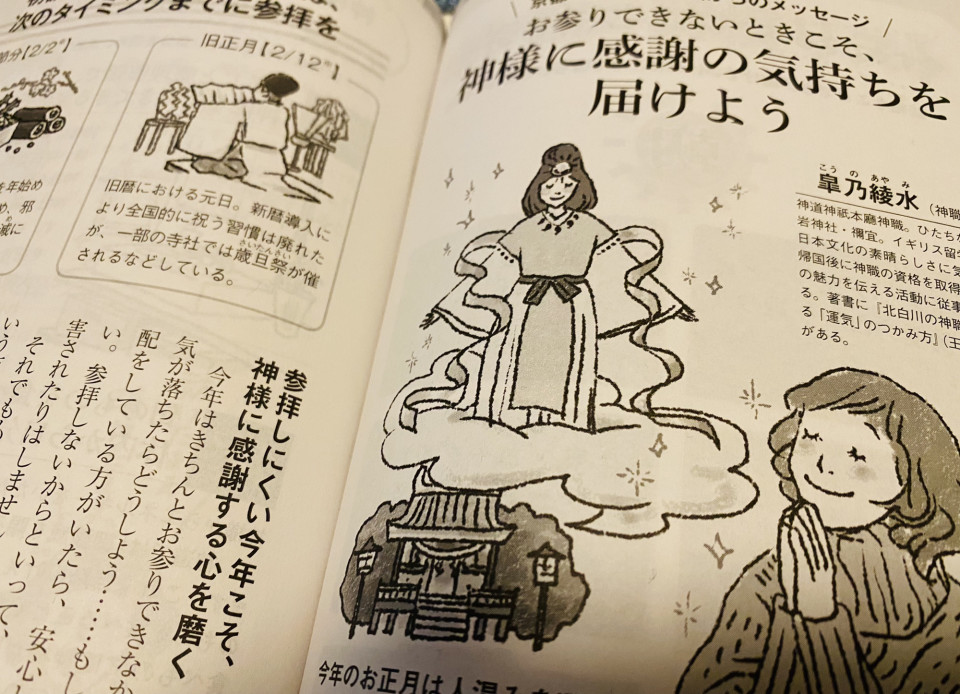 次のタイミングまでに参拝を
分【2/2*】
旧正月【2/12*】
旧暦における元日。新暦導入に
より全国的に祝う習慣は廃れた
が、一部の寺社では歳旦祭が催
さいたんさい
されるなどしている。
を年始め
め、邪
滅に
参拝しにくい今年こそ、
神様に感謝する心を磨く
今年はきちんとお参りできな
気が落ちたらどうしよう……もし
配をしている方がいたら、安心し
い。参拝しないからといって、
害されたりはしません
それでもも
いう
のメッセージ
お参りできないときこそ、
神様に感謝の気持ちを
届けよう
こう の あや み
皐乃綾水（神職
神道神祇本廳神職。ひたち
岩神社・禰宜。イギリス留
日本文化の素晴らしさに気
帰国後に神職の資格を取得
の魅力を伝える活動に従事
る。著書に『北白川の神職
る「運気」のつかみ方』（王
がある。
今年のお正月は人混み